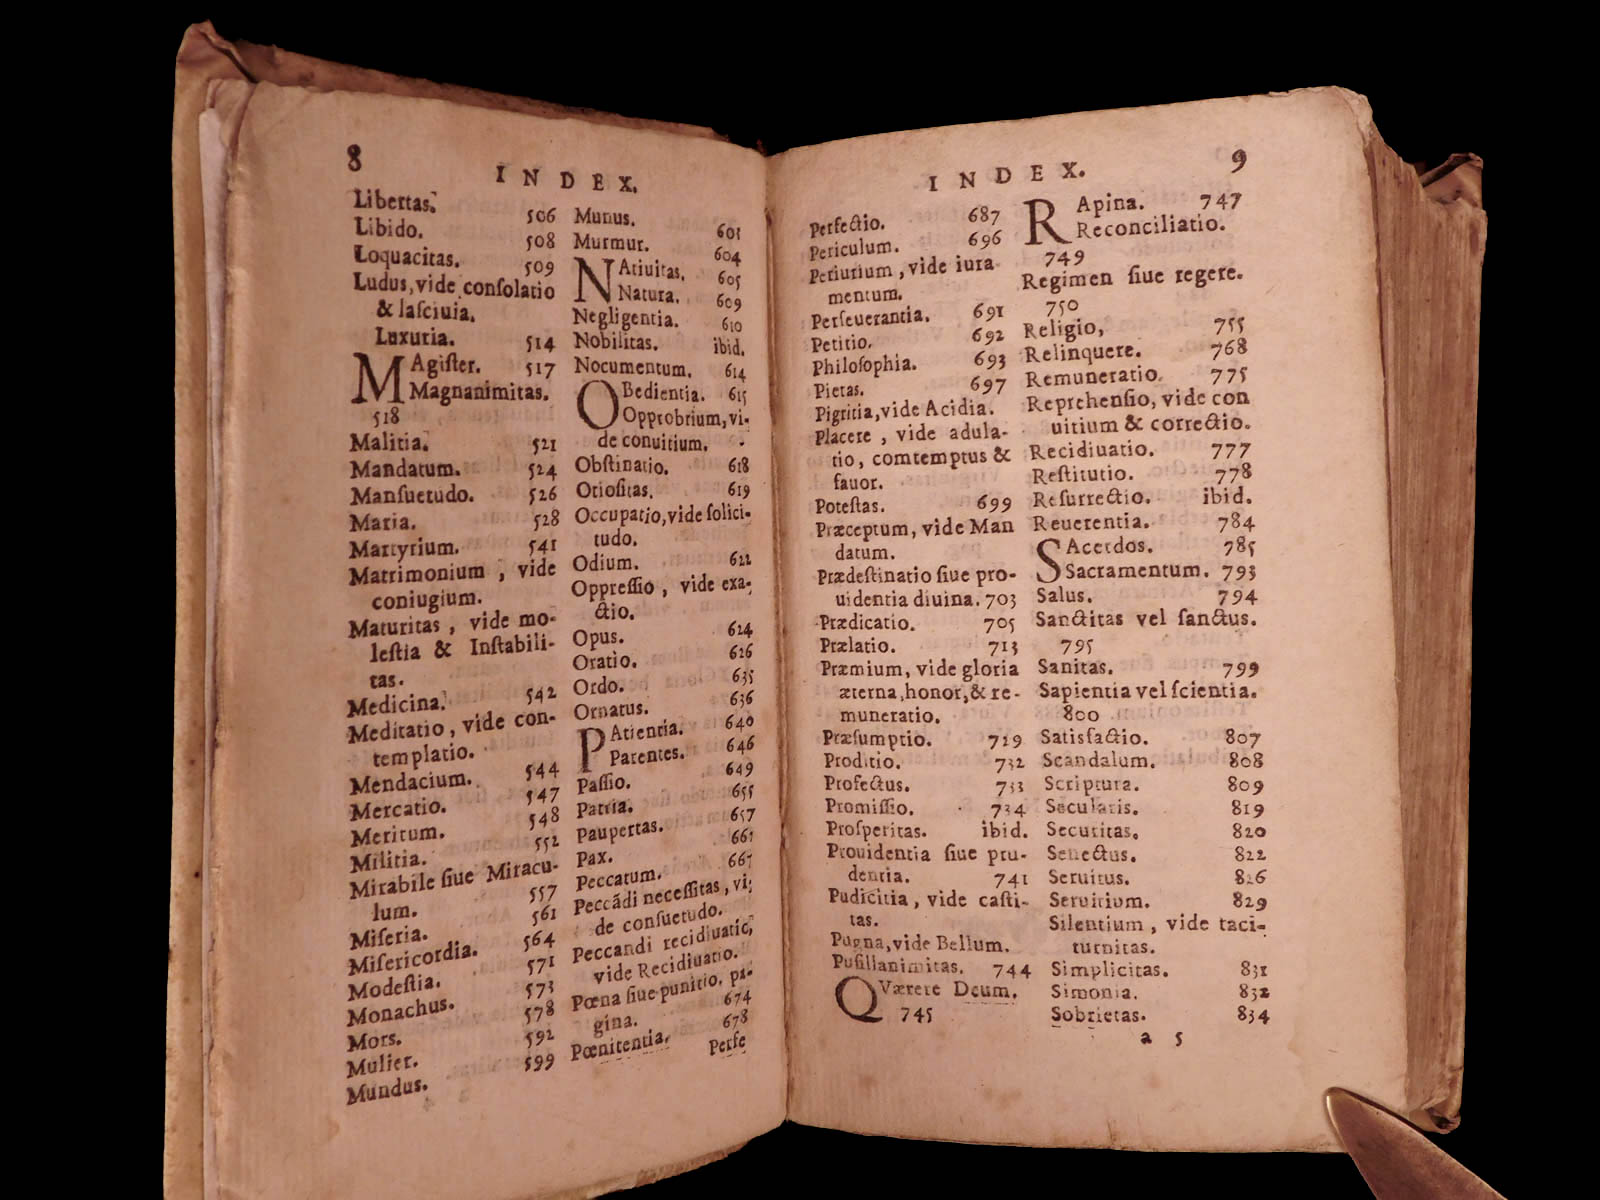 8 INDEX.
Libertas. 506
Libido. 508
Loquacitas. 509
Ludus, vide conſolatio
& laſciuia.
Luxuria. 514
MAgiſter. 517
Magnanimitas.
518
Malitia. 521
Mandatum. 524
Manſuetudo. 526
Maria. 528
Martyrium. 541
Matrimonium , vide
coniugium.
Maturitas , vide mo-
leſtia & Inſtabili-
tas.
Medicina. 542
Meditatio , vide con-
templatio.
Mendacium. 544
Mercatio. 547
Meritum. 548
Militia. 552
Mirabile ſiue Miracu-
lum. 557
Miſeria. 561
Miſericordia. 564
Modeſtia. 571
Monachus. 573
Mors. 578
Mulier. 592
Mundus. 599
Munus. 601
Murmur. 604
NAtiuitas. 605
Natura. 609
Negligentia. 610
Nobilitas. ibid.
Nocumentum. 614
OBedientia. 615
Opprobrium, vi-
de conuitium.
Obſtinatio. 618
Otioſitas. 619
Occupatio, vide ſolici-
tudo.
Odium. 622
Oppreſſio , vide exa-
ctio.
Opus. 624
Oratio. 626
Ordo. 635
Ornatus. 636
PAtientia. 640
Parentes. 646
Paſſio. 649
Patria. 655
Paupertas. 657
Pax. 661
Peccatum. 667
Peccãdi neceſſitas, vi-
de conſuetudo.
Peccandi recidiuatio,
vide Recidiuatio.
Pœna ſiue punitio, pa-
gina. 674
Pœnitentia. 678
Perfe
INDEX. 9
Perfectio. 687
Periculum. 696
Periurium , vide iura
mentum.
Perſeuerantia. 691
Petitio. 692
Philoſophia. 693
Pietas. 697
Pigritia, vide Acidia.
Placere , vide adula-
tio, comtemptus &
fauor.
Poteſtas. 699
Præceptum, vide Man
datum.
Prædeſtinatio ſiue pro-
uidentia diuina. 703
Prædicatio. 705
Prælatio. 713
Præmium, vide gloria
æterna, honor, & re-
muneratio.
Præſumptio. 729
Proditio. 732
Profectus. 733
Promiſſio. 734
Proſperitas. ibid.
Prouidentia ſiue pru-
dentia. 741
Pudicitia , vide caſti-
tas.
Pugna, vide Bellum.
Puſillanimitas. 744
QVærere Deum.
745
RApina. 747
Reconciliatio.
749
Regimen ſiue regere.
750
Religio, 755
Relinquere. 768
Remuneratio. 775
Reprehenſio, vide con
uitium & correctio.
Recidiuatio. 777
Reſtitutio. 778
Reſurrectio. ibid.
Reuerentia. 784
SAcerdos. 785
Sacramentum. 793
Salus. 794
Sanctitas vel ſanctus.
795
Sanitas. 799
Sapientia vel ſcientia.
800
Satisfactio. 807
Scandalum. 808
Scriptura. 809
Secularis. 819
Securitas. 820
Senectus. 822
Seruitus. 826
Seruitium. 829
Silentium , vide taci-
turnitas.
Simplicitas. 831
Simonia. 832
Sobrietas. 834
a 5